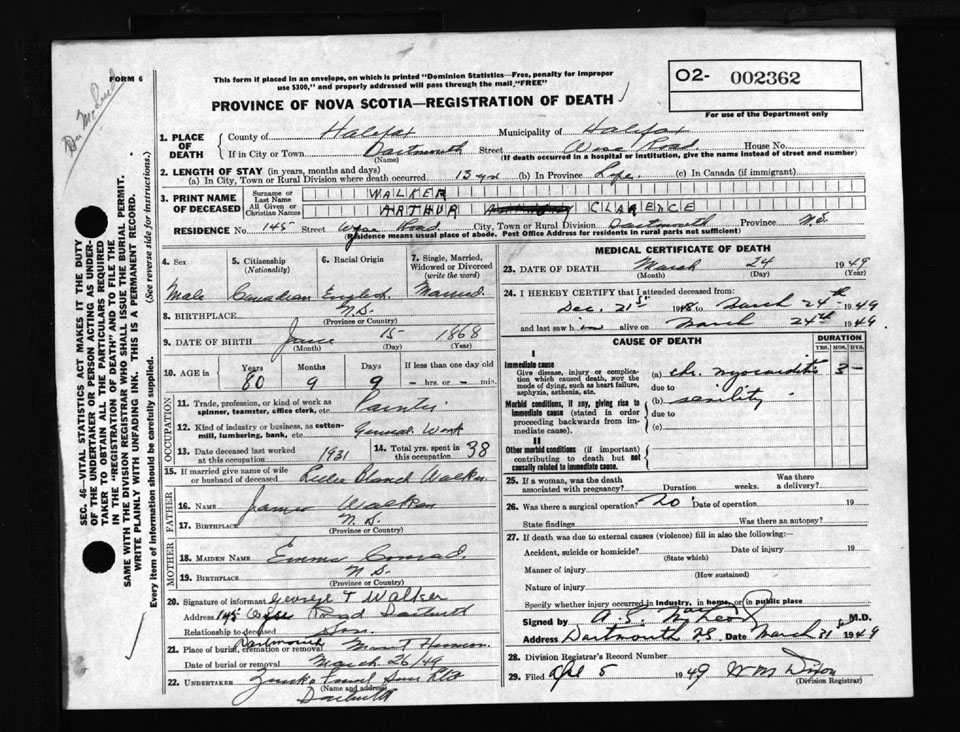 FORM 6
Dr. McLeod
This form if placed in an envelope, on which is printed "Dominion Statistics—Free, penalty for improper
use $300," and properly addressed will pass through the mail "FREE"
PROVINCE OF NOVA SCOTIA—REGISTRATION OF DEATH
O2- 002362
For use of the Department only
1. PLACE OF DEATH County of Halifax Municipality of Halifax
If in City or Town Dartmouth (Name) Street Wyse Road House No.
(If death occurred in a hospital or institution, give the name instead of street and number)
2. LENGTH OF STAY (in years, months and days)
(a) In City, Town or Rural Division where death occurred 15 yrs (b) In Province Life (c) In Canada (if immigrant)
3. PRINT NAME OF DECEASED Surname or Last Name WALKER
All Given or Christian Names ARTHUR CLARENCE
RESIDENCE No. 145 Street Wyse Road City, Town or Rural Division Dartmouth Province N.S.
(Residence means usual place of abode. Post Office Address for residents in rural parts not sufficient)
4. Sex Male
5. Citizenship (Nationality) Canadian
6. Racial Origin English
7. Single, Married, Widowed or Divorced (write the word) Married
8. BIRTHPLACE N.S. (Province or Country)
9. DATE OF BIRTH June (Month) 15 (Day) 1868 (Year)
10. AGE in Years 80 Months 9 Days 9 If less than one day old – hrs. or – min.
OCCUPATION
11. Trade, profession, or kind of work as spinner, teamster, office clerk, etc. Painter
12. Kind of industry or business, as cotton-mill, lumbering, bank, etc. General Work
13. Date deceased last worked at this occupation 1931 14. Total yrs. spent in this occupation 38
15. If married give name of wife or husband of deceased Lillie Blanch Walker
FATHER
16. NAME James Walker
17. BIRTHPLACE N.S. (Province or Country)
MOTHER
18. MAIDEN NAME Emma Conrad
19. BIRTHPLACE N S (Province or Country)
20. Signature of informant George T Walker
Address 145 Wyse Road Dartmouth
Relationship to deceased Son
21. Place of burial, cremation or removal Dartmouth Mount Hermon
Date of burial or removal March 26/49
22. UNDERTAKER (Name and address)
Dartmouth
MEDICAL CERTIFICATE OF DEATH
23. DATE OF DEATH March (Month) 24 (Day) 1949 (Year)
24. I HEREBY CERTIFY that I attended deceased from:
Dec. 21st 1948 to March 24th 1949
and last saw him alive on March 24th 1949.
CAUSE OF DEATH DURATION
YRS. MOS. DYS.
I
Immediate cause
Give disease, injury or complication which caused death, NOT the mode of dying, such as heart failure, asphyxia, asthenia, etc.
(a) chr. myocarditis – 3 –
due to
Morbid conditions, if any, giving rise to immediate cause (stated in order proceeding backwards from immediate cause).
(b) senility
due to
(c)
II
Other morbid conditions (if important) contributing to death but not causally related to immediate cause.
25. If a woman, was the death associated with pregnancy? Duration weeks. Was there a delivery?
26. Was there a surgical operation? no Date of operation 19
State findings Was there an autopsy?
27. If death was due to external causes (violence) fill in also the following:—
Accident, suicide or homicide? (State which) Date of injury 19
Manner of injury (How sustained)
Nature of injury
Specify whether injury occurred in industry, in home, or in public place
Signed by M.D.
Address Dartmouth N.S. Date March 31 1949
28. Division Registrar's Record Number
29. Filed Apl 5 1949 W M (Division Registrar)
SEC. 46—VITAL STATISTICS ACT MAKES IT THE DUTY
OF THE UNDERTAKER OR PERSON ACTING AS UNDER-
TAKER TO OBTAIN ALL THE PARTICULARS REQUIRED
IN THE "REGISTRATION OF DEATH" AND TO FILE THE
SAME WITH THE DIVISION REGISTRAR WHO SHALL ISSUE THE BURIAL PERMIT.
WRITE PLAINLY WITH UNFADING INK. THIS IS A PERMANENT RECORD.
Every item of information should be carefully supplied. (See reverse side for instructions.)